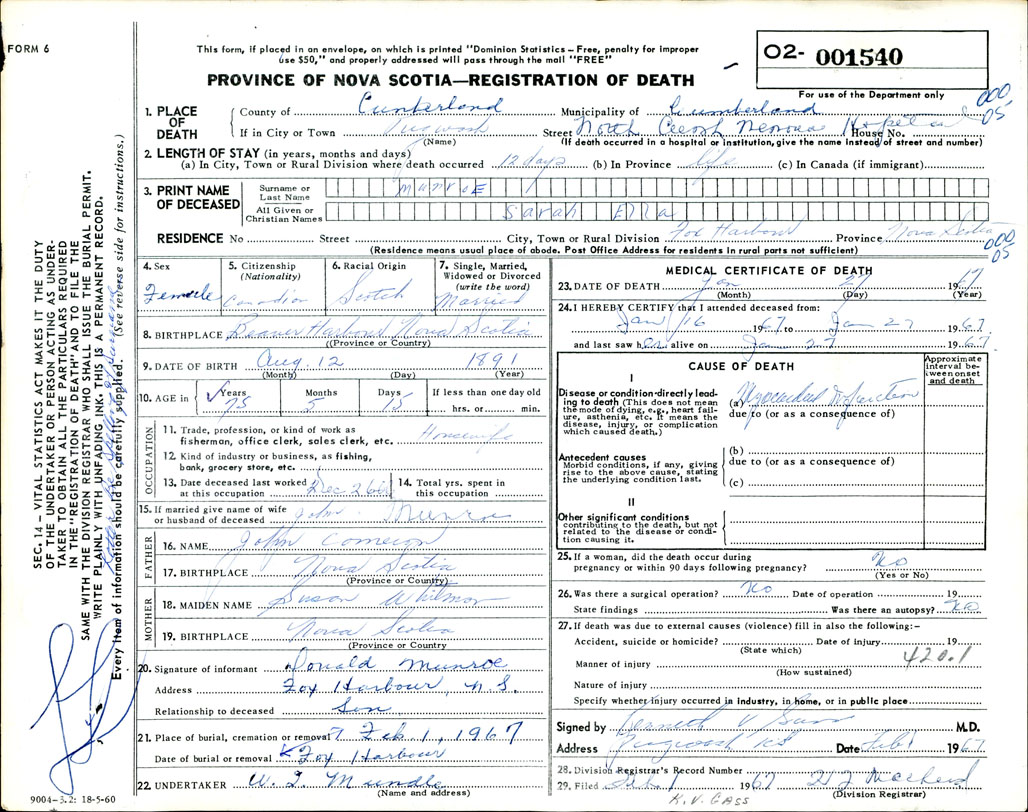 FORM 6
This form, if placed in an envelope, on which is printed "Dominion Statistics – Free, penalty for improper
use $50," and properly addressed will pass through the mail "FREE"
PROVINCE OF NOVA SCOTIA—REGISTRATION OF DEATH
O2- 001540
For use of the Department only
000
05
1. PLACE OF DEATH
County of Cumberland Municipality of Cumberland
If in City or Town Pugwash Street North Nenova Hospital House No.
(Name) (If death occurred in a hospital or institution, give the name instead of street and number)
2. LENGTH OF STAY (in years, months and days)
(a) In City, Town or Rural Division where death occurred 12 days (b) In Province life (c) In Canada (if immigrant)
3. PRINT NAME OF DECEASED
Surname or Last Name MUNROE
All Given or Christian Names Sarah Ella
RESIDENCE No Street City, Town or Rural Division Fox Harbour Province Nova Scotia
(Residence means usual place of abode. Post Office Address for residents in rural parts not sufficient)
000
05
4. Sex Female
5. Citizenship (Nationality) Canadian
6. Racial Origin Scotch
7. Single, Married, Widowed or Divorced (write the word) Married
8. BIRTHPLACE Beaver Harbour Nova Scotia
(Province or Country)
9. DATE OF BIRTH Aug. 12 1891
(Month) (Day) (Year)
10. AGE in Years 75 Months 5 Days 15 If less than one day old hrs. or min.
OCCUPATION
11. Trade, profession, or kind of work as
fisherman, office clerk, sales clerk, etc. Housewife
12. Kind of industry or business, as fishing,
bank, grocery store, etc.
13. Date deceased last worked at this occupation Dec 26
14. Total yrs. spent in this occupation
15. If married give name of wife
or husband of deceased John Munro
FATHER
16. NAME John Cameron
17. BIRTHPLACE Nova Scotia
(Province or Country)
MOTHER
18. MAIDEN NAME Susan Whitman
19. BIRTHPLACE Nova Scotia
(Province or Country
20. Signature of informant Donald Munroe
Address Fox Harbour, N.S.
Relationship to deceased Son
21. Place of burial, cremation or removal Feb 1, 1967
Date of burial or removal Fox Harbour
22. UNDERTAKER W. Mundle
(Name and address)
9004-3.2: 18-5-60
MEDICAL CERTIFICATE OF DEATH
23. DATE OF DEATH Jan 27 1967
(Month) (Day) (Year)
24. I HEREBY CERTIFY that I attended deceased from:
Jan 16 1967 to Jan 27 1967
and last saw her alive on Jan 27 1967
CAUSE OF DEATH
Approximate interval between onset and death
I
Disease or condition directly leading to death (This does not mean the mode of dying, e.g., heart failure, asthenia, etc. It means the disease, injury, or complication which caused death.)
(a) Myocardial Infarction
due to (or as a consequence of)
Antecedent causes
Morbid conditions, if any, giving rise to the above cause, stating the underlying condition last.
(b)
due to (or as a consequence of)
(c)
II
Other significant conditions
contributing to the death, but not related to the disease or condition causing it.
25. If a woman, did the death occur during
pregnancy or within 90 days following pregnancy? No
(Yes or No)
26. Was there a surgical operation? No Date of operation 19
State findings Was there an autopsy? No
27. If death was due to external causes (violence) fill in also the following:–
Accident, suicide or homicide? Date of injury 19
(State which)
420.1
Manner of injury
(How sustained)
Nature of injury
Specify whether injury occurred in industry, in home, or in public place
Signed by Kenneth V Gass M.D.
Address Pugwash NS Date Feb 1 1967
28. Division Registrar's Record Number
29. Filed Feb 1 1967
(Division Registrar)
K.V. GASS
SEC. 14 – VITAL STATISTICS ACT MAKES IT THE DUTY
OF THE UNDERTAKER OR PERSON ACTING AS UNDER-
TAKER TO OBTAIN ALL THE PARTICULARS REQUIRED
IN THE "REGISTRATION OF DEATH" AND TO FILE THE
SAME WITH THE DIVISION REGISTRAR WHO SHALL ISSUE THE BURIAL PERMIT.
WRITE PLAINLY WITH UNFADING INK. THIS IS A PERMANENT RECORD.
Every item of information should be carefully supplied. (See reverse side for instructions.)